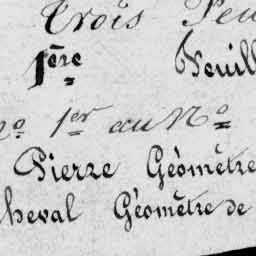 trois Feu
1ère Feuill
No 1er au No
Pierre Géomètre
cheval Géomètre de